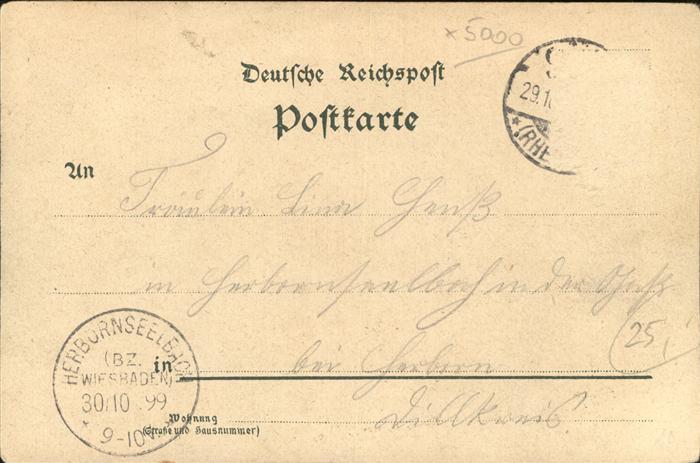 x 5000
Deutsche Reichspost
Postkarte
29.10
(RHE
An
Fräulein Lina
in Herbornseelbach in der
25,
HERBORNSEELBACH
(BZ.
WIESBADEN)
30/10 99
9-10V
in bei Herborn
Wohnung
(Straße und Hausnummer)
Dillkreis